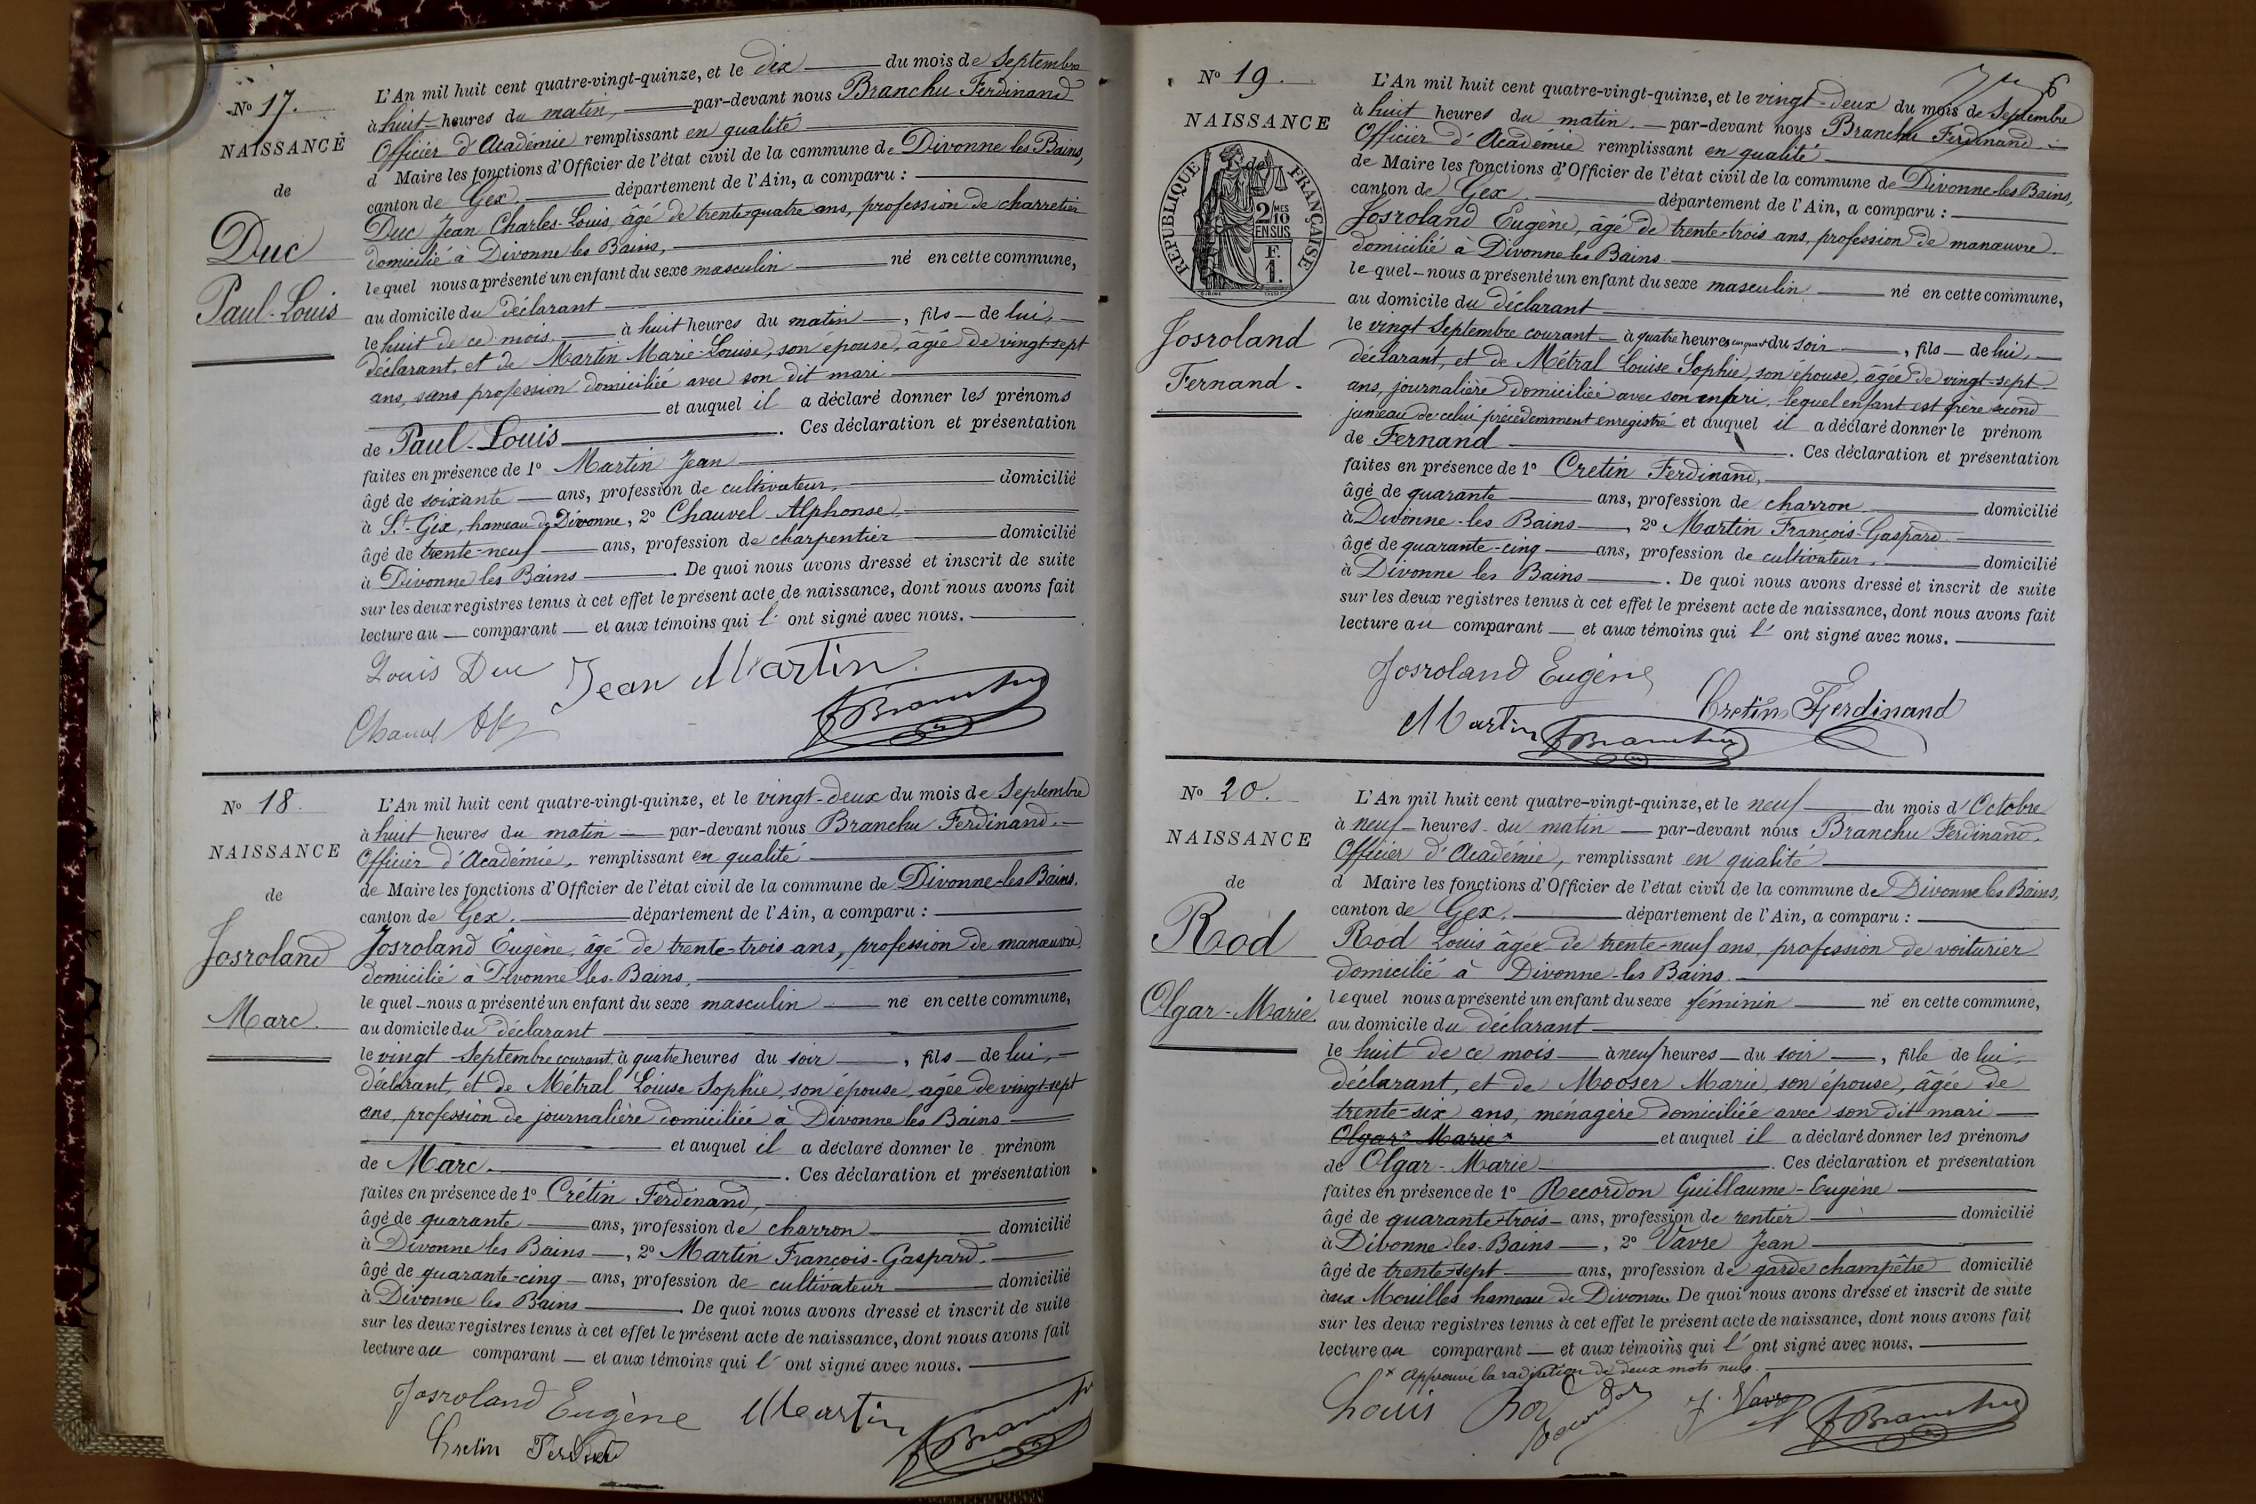 N° 17.
NAISSANCE
de
Duc
Paul-Louis
L'An mil huit cent quatre-vingt-quinze, et le dix du mois de Septembre
à huit heures du matin, par-devant nous Branchu Ferdinand
Officier d'Académie remplissant en qualité
d Maire les fonctions d'Officier de l'état civil de la commune de Divonne les Bains,
canton de Gex, département de l'Ain, a comparu :
Duc Jean Charles-Louis, âgé de trente-quatre ans, profession de charretier
domicilié à Divonne les Bains,
lequel nous a présenté un enfant du sexe masculin né en cette commune,
au domicile du déclarant
le huit de ce mois, à huit heures du matin, fils de lui,
déclarant, et de Martin Marie-Louise, son épouse, âgée de vingt-sept
ans, sans profession domiciliée avec son dit mari
et auquel il a déclaré donner les prénoms
de Paul-Louis. Ces déclaration et présentation
faites en présence de 1° Martin Jean
âgé de soixante ans, profession de cultivateur, domicilié
à St-Gix, hameau de Divonne, 2° Chauvel Alphonse
âgé de trente-neuf ans, profession de charpentier domicilié
à Divonne les Bains. De quoi nous avons dressé et inscrit de suite
sur les deux registres tenus à cet effet le présent acte de naissance, dont nous avons fait
lecture au comparant et aux témoins qui l' ont signé avec nous.
Louis Duc Jean Martin
Chauvel Branchu
N° 18.
NAISSANCE
de
Josroland
Marc.
L'An mil huit cent quatre-vingt-quinze, et le vingt-deux du mois de Septembre
à huit heures du matin par-devant nous Branchu Ferdinand.
Officier d'Académie, remplissant en qualité
de Maire les fonctions d'Officier de l'état civil de la commune de Divonne-les Bains.
canton de Gex. département de l'Ain, a comparu :
Josroland Eugène, âgé de trente-trois ans, profession de manœuvre.
domicilié à Divonne-les-Bains,
le quel nous a présenté un enfant du sexe masculin né en cette commune,
au domicile du déclarant
le vingt Septembre courant, à quatre heures du soir, fils de lui,
déclarant, et de Métral Louise Sophie, son épouse, agée de vingt-sept
ans, profession de journalière domiciliée à Divonne les Bains
et auquel il a déclaré donner le prénom
de Marc. Ces déclaration et présentation
faites en présence de 1° Crétin Ferdinand,
âgé de quarante ans, profession de charron domicilié
à Divonne les Bains, 2° Martin François-Gaspard.
âgé de quarante-cinq ans, profession de cultivateur domicilié
à Divonne les Bains. De quoi nous avons dressé et inscrit de suite
sur les deux registres tenus à cet effet le présent acte de naissance, dont nous avons fait
lecture au comparant et aux témoins qui l' ont signé avec nous.
Josroland Eugène Martin
Cretin Branchu
6
N° 19.
NAISSANCE
de
RÉPUBLIQUE FRANÇAISE
2/10 MES EN SUS
F. 1.
Josroland
Fernand.
L'An mil huit cent quatre-vingt-quinze, et le vingt-deux du mois de Septembre
à huit heures du matin. par-devant nous Branchu Ferdinand
Officier d'Académie remplissant en qualité
de Maire les fonctions d'Officier de l'état civil de la commune de Divonne-les Bains,
canton de Gex département de l'Ain, a comparu :
Josroland Eugène, âgé de trente-trois ans, profession de manœuvre.
domicilié à Divonne les Bains
le quel nous a présenté un enfant du sexe masculin né en cette commune,
au domicile du déclarant
le vingt Septembre courant à quatre heures du soir, fils de lui,
déclarant, et de Métral Louise Sophie, son épouse, âgée de vingt-sept
ans, journalière domiciliée avec son mari, lequel enfant est frère second
jumeau de celui précédemment enregistré et auquel il a déclaré donner le prénom
de Fernand. Ces déclaration et présentation
faites en présence de 1° Cretin Ferdinand,
âgé de quarante ans, profession de charron domicilié
à Divonne-les Bains, 2° Martin François-Gaspard
âgé de quarante-cinq ans, profession de cultivateur, domicilié
à Divonne les Bains. De quoi nous avons dressé et inscrit de suite
sur les deux registres tenus à cet effet le présent acte de naissance, dont nous avons fait
lecture au comparant et aux témoins qui l' ont signé avec nous.
Josroland Eugène
Cretin Ferdinand
Martin Branchu
N° 20.
NAISSANCE
de
Rod
Olgar-Marie.
L'An mil huit cent quatre-vingt-quinze, et le neuf du mois d'Octobre
à neuf heures du matin par-devant nous Branchu Ferdinand.
Officier d'Académie, remplissant en qualité
d Maire les fonctions d'Officier de l'état civil de la commune de Divonne les Bains,
canton de Gex. département de l'Ain, a comparu :
Rod Louis âgé de trente-neuf ans, profession de voiturier
domicilié à Divonne-les Bains.
lequel nous a présenté un enfant du sexe féminin né en cette commune,
au domicile du déclarant
le huit de ce mois à neuf heures du soir, fille de lui,
déclarant, et de Mooser Marie, son épouse, âgée de
trente-six ans, ménagère domiciliée avec son dit mari
Olgar* Marie* et auquel il a déclaré donner les prénoms
de Olgar-Marie. Ces déclaration et présentation
faites en présence de 1° Recordon Guillaume-Eugène
âgé de quarante-trois ans, profession de rentier domicilié
à Divonne-les-Bains, 2° Vavre Jean
âgé de trente-sept ans, profession de garde champêtre domicilié
aux Mouilles hameau de Divonne De quoi nous avons dressé et inscrit de suite
sur les deux registres tenus à cet effet le présent acte de naissance, dont nous avons fait
lecture au comparant et aux témoins qui l' ont signé avec nous.
* Approuvé la radiation de deux mots nuls.
Louis Rod Recordon J. Vavre Branchu